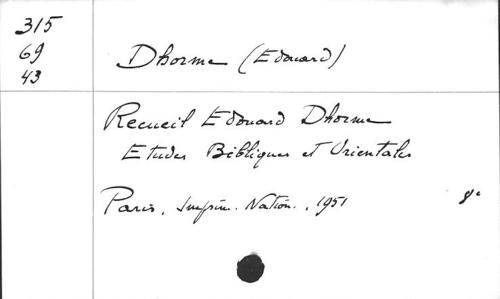 315
69
43
Dhorme (Edouard)
Recueil Edouard Dhorme
Etudes Bibliques et Orientales
Paris, Imprim. Nation., 1951 8°